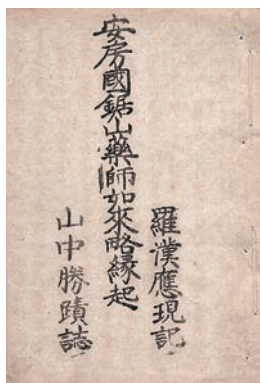 安房國鋸山藥師如來略縁起
羅漢應現記
山中勝蹟誌